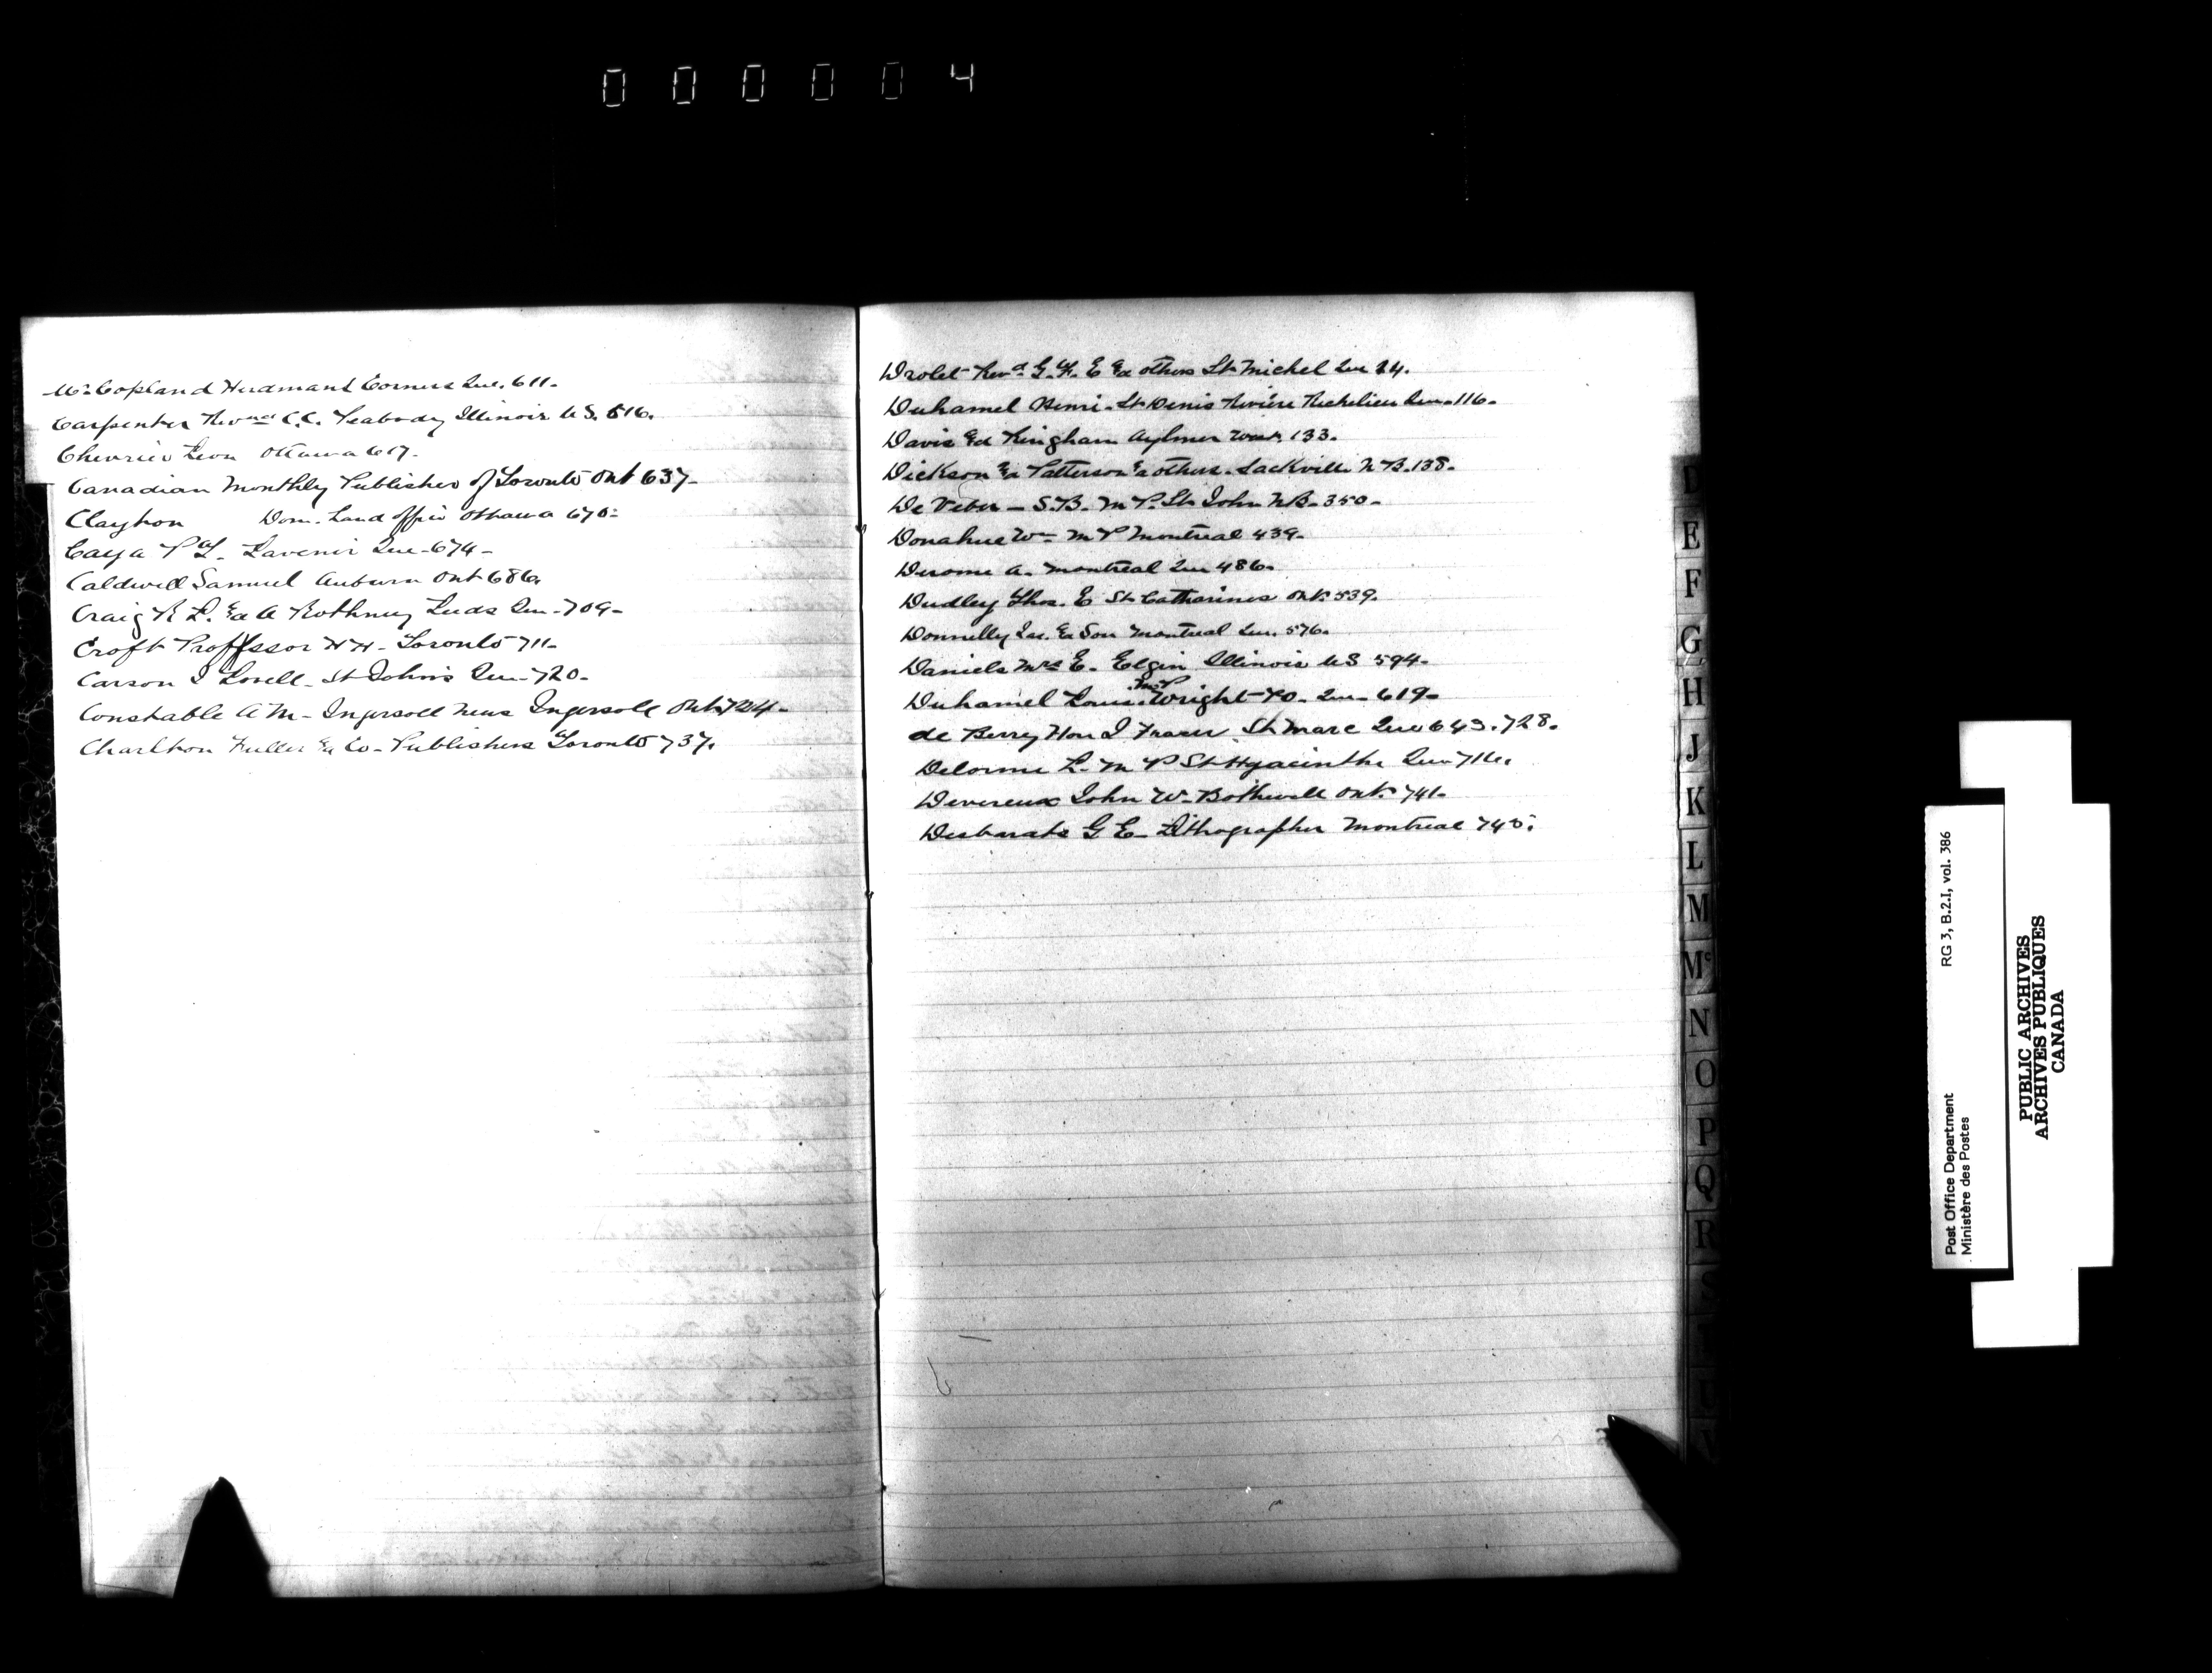 000004
Mc Copland Herdmans Corners Que. 611-
Carpenter Revd C.C. Peabody Illinois U.S. 616.
Chevrier Leon Ottawa 617-
Canadian Monthly Publisher of Toronto Ont 637-
Clayton Dom. Land Office Ottawa 670-
Caya P L. Lavenir Que-674-
Caldwell Samuel Auburn Ont 686.
Craig R L. & A Rothney Leeds Que-709-
Croft Professor H H- Toronto 711-
Carson I Lovell- St Johns Que-720-
Constable A M- Ingersoll News Ingersoll Ont-724-
Charlton Fuller & Co-Publishers Toronto 737.
Drolet Revd G. F. E & others St Michel Que 24.
Duhamel Henri- St Denis Rivière Richelieu Que-116-
Davis & Kingham Aylmer West. 133.
Dickson & Patterson & others. Sackville N B. 138-
De Veber - S. B. M P. St John NB-350-
Donahue Wm M P Montreal 439-
Derome A. Montreal Que 486-
Dudley Thos. E St Catharines Ont. 539.
Donnelly Jas. & Son Montreal Que. 576-
Daniels Mrs E. Elgin Illinois U S 594-
Duhamel Louis. M.P Wright-PO- Que- 619-
de Berry Hon I Fraser St Marc Que 643. 728.
Delorme L- M P St Hyacinthe Que-714.
Devereux John W- Bothwell Ont. 741-
Desbarats G E- Lithographer Montreal 745.
D
E
F
G
H
J
K
L
M
Mc
N
O
P
Q
R
S
T
U
V
RG 3, B.2.I, vol. 386
Post Office Department
Ministère des Postes
PUBLIC ARCHIVES
ARCHIVES PUBLIQUES
CANADA